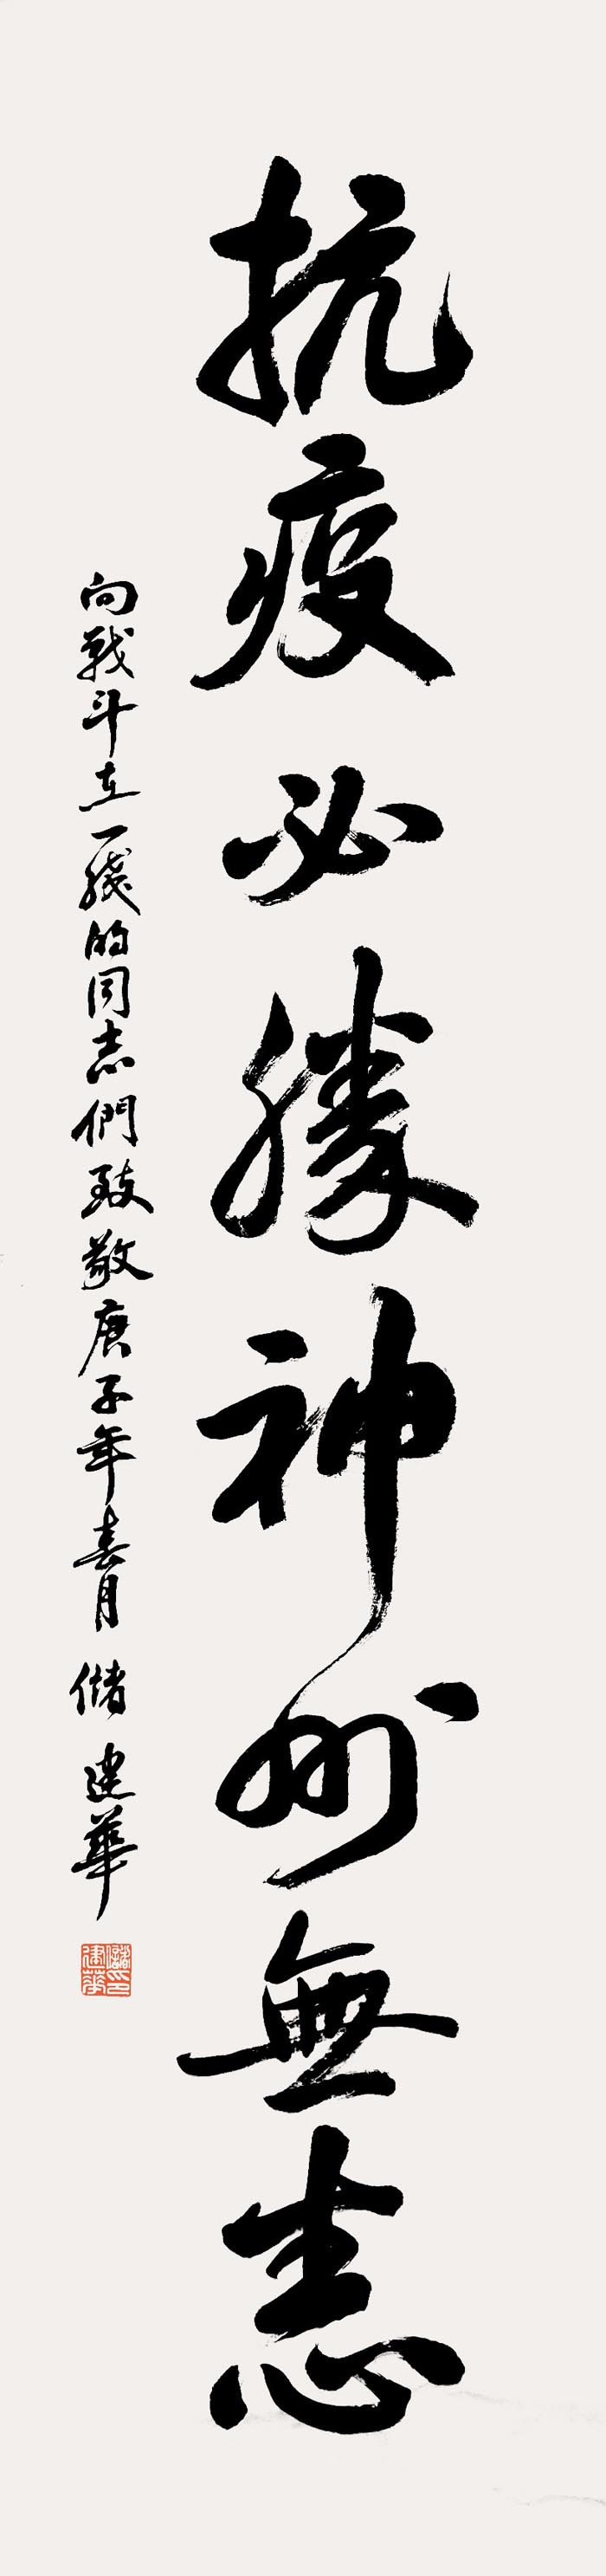 抗疫必勝神州無恙
向戰斗在一綫的同志們致敬庚子年春月 儲建華
儲建華印